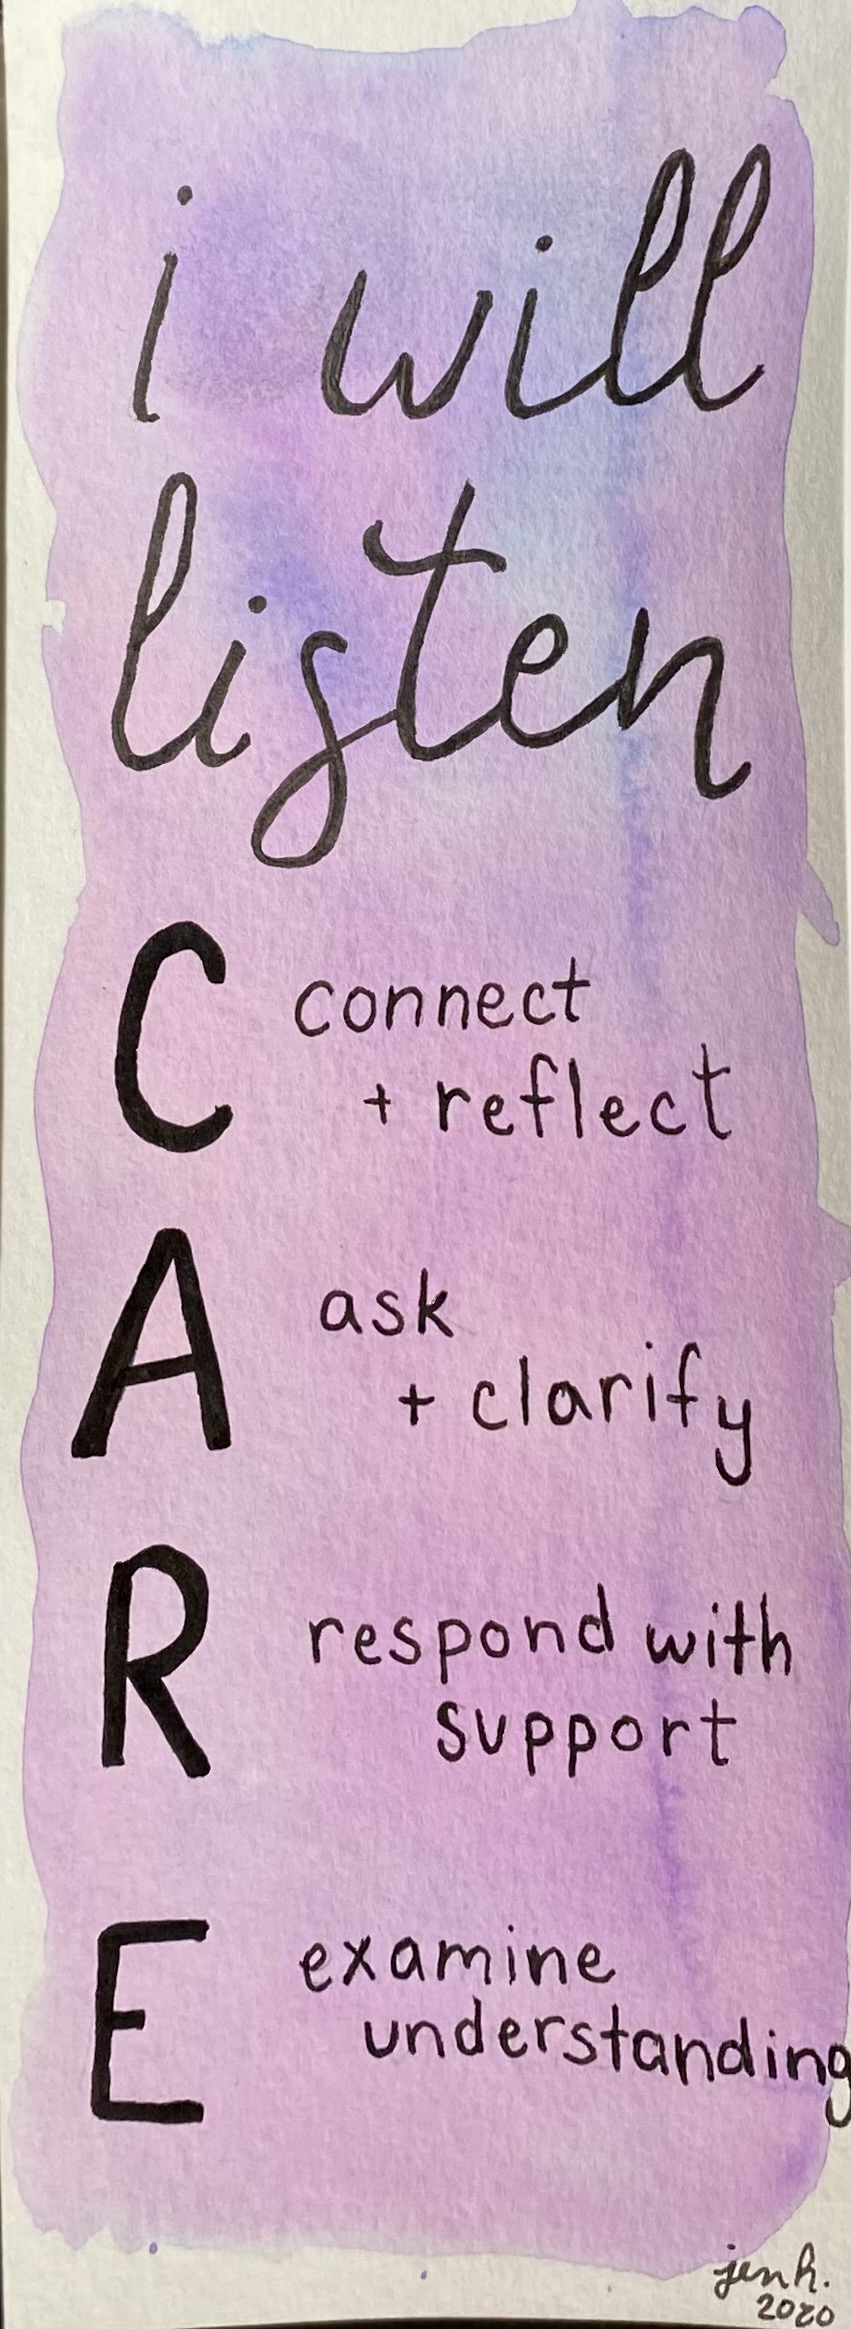 i will
listen
C connect
+ reflect
A ask
+ clarify
R respond with
support
E examine
understanding
jen h.
2020